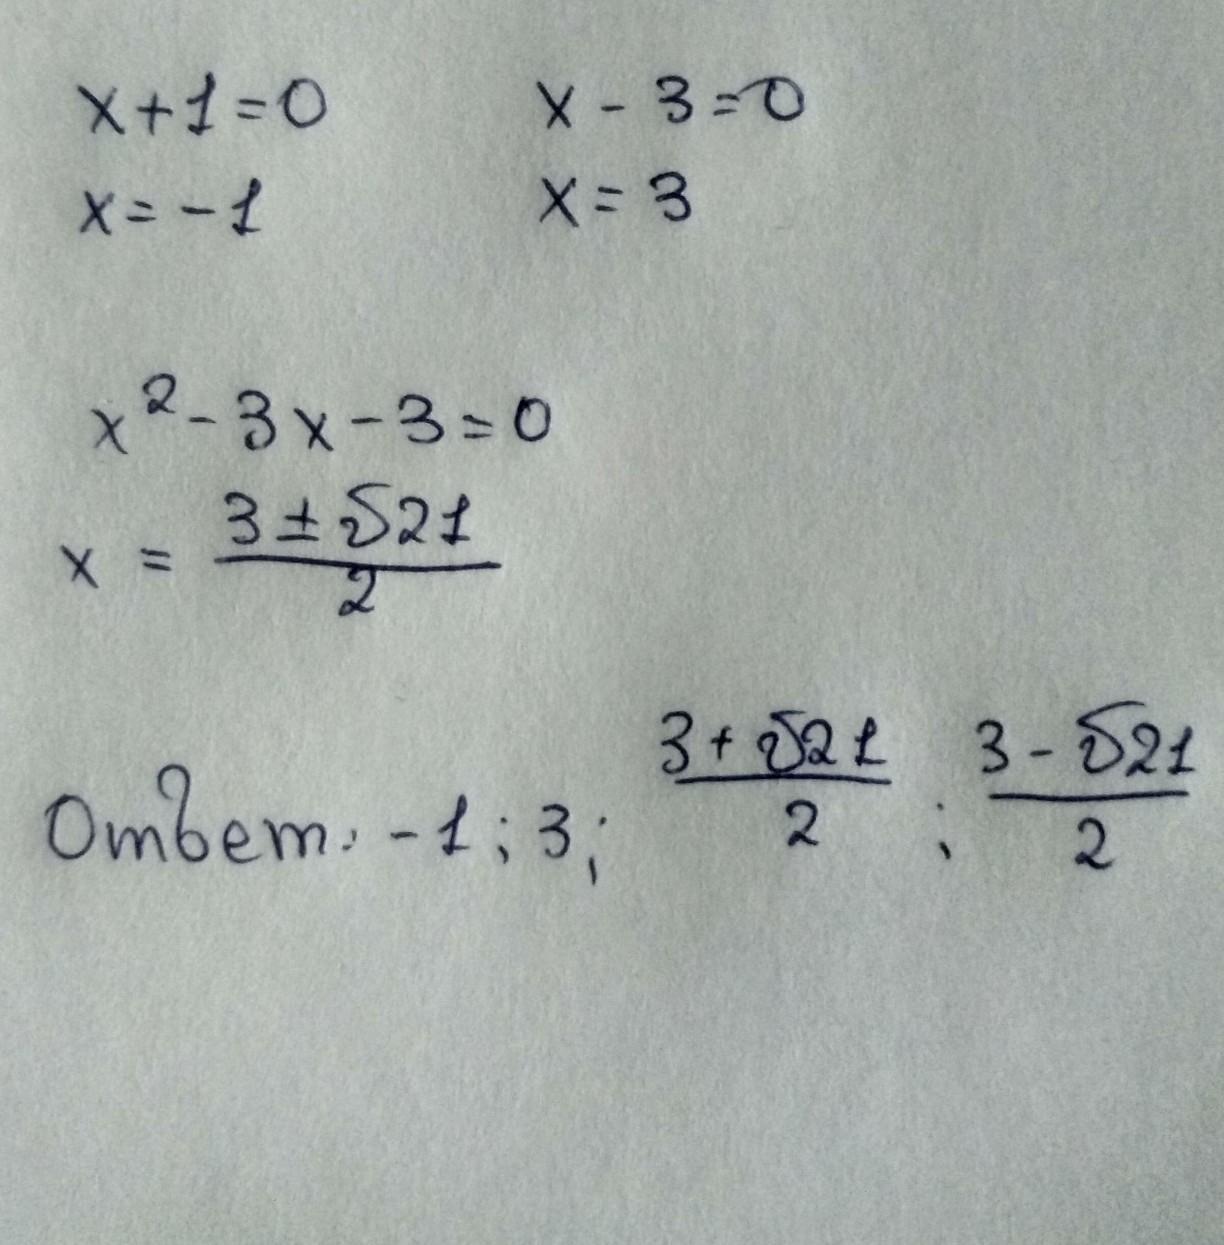 x+1=0 x-3=0
x=-1 x=3
x²-3x-3=0
x = (3±√21)/2
Ответ: -1; 3; (3+√21)/2; (3-√21)/2